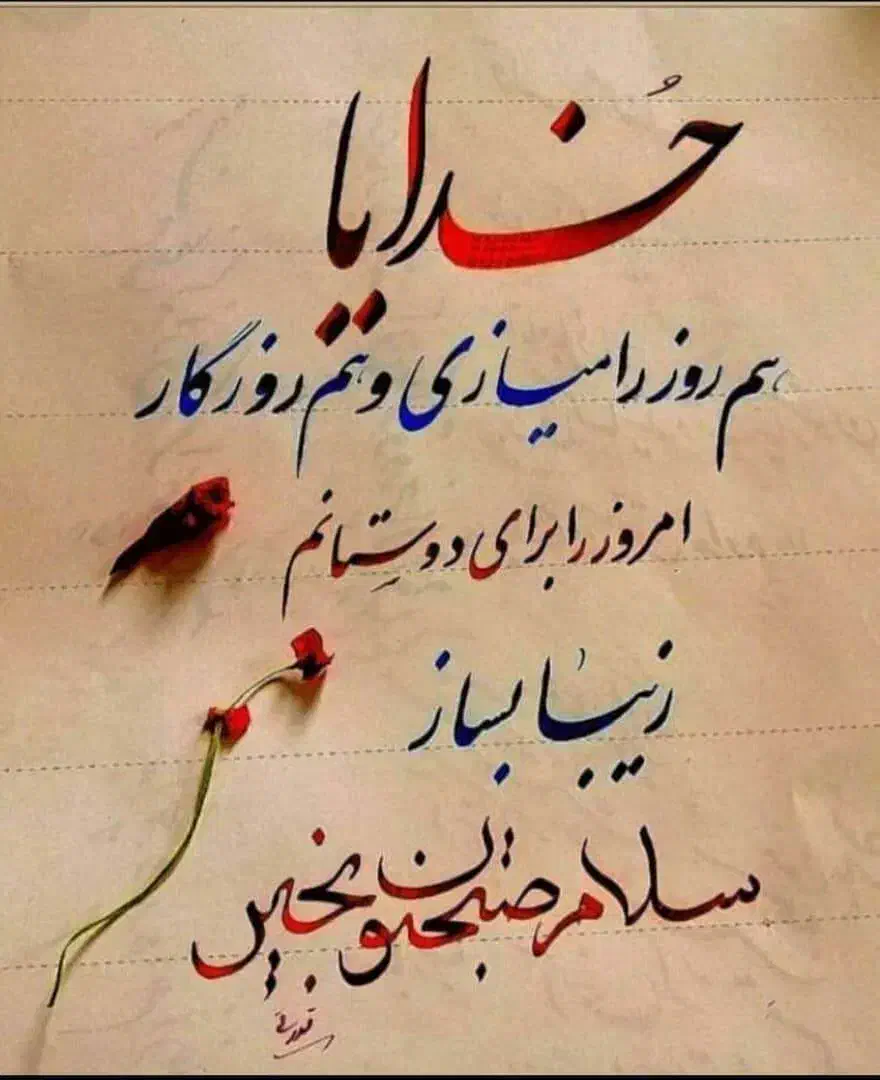 خدایا
هم روز را میسازی و هم روزگار
امروز را برای دوستانم
زیبا بساز
سلام صبحتون بخیر